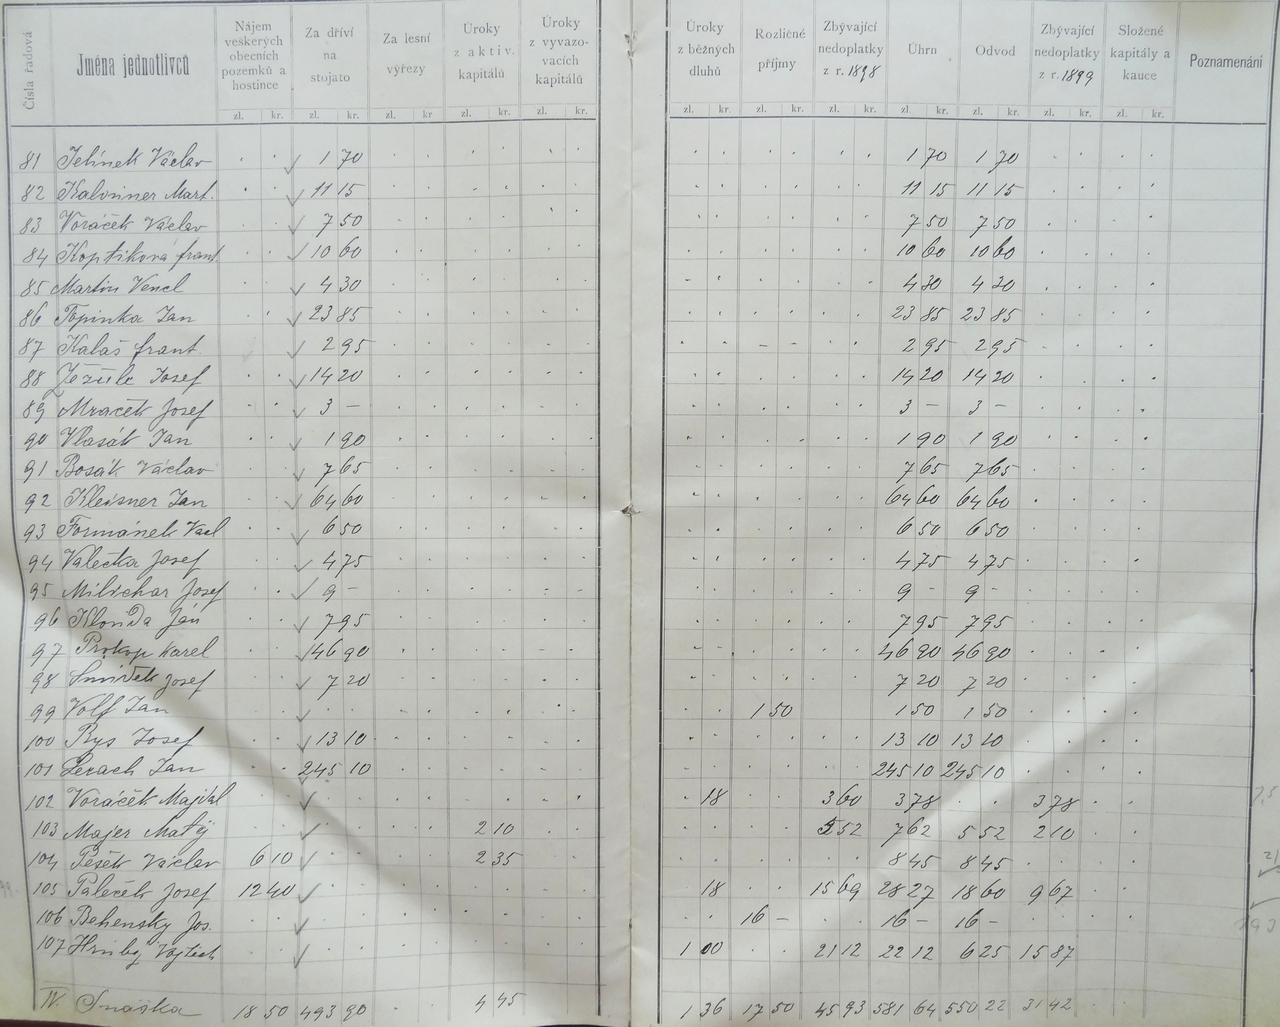 Čísla řadová | Jména jednotlivců | Nájem veškerých obecních pozemků a hostince | Za dříví na stojato | Za lesní výřezy | Úroky z aktiv. kapitálů | Úroky z vyvazovacích kapitálů | Úroky z běžných dluhů | Rozličné příjmy | Zbývající nedoplatky z r. 1898 | Úhrn | Odvod | Zbývající nedoplatky z r. 1899 | Složené kapitály a kauce | Poznamenání
zl. kr. zl. kr. zl. kr zl. kr. zl. kr. zl. kr. zl. kr. zl. kr. zl. kr. zl. kr. zl. kr. zl. kr.
81 Jelínek Václav 1 70 1 70 1 70
82 Mart. 11 15 11 15 11 15
83 Voráček Václav 7 50 7 50 7 50
84 Koptikova frant 10 60 10 60 10 60
85 Martin Vencl 4 30 4 30 4 30
86 Topinka Jan 23 85 23 85 23 85
87 Kalaš frant. 2 95 2 95 2 95
88 Josef 14 20 14 20 14 20
89 Mraček Josef 3 – 3 – 3 –
90 Vlasák Jan 1 90 1 90 1 90
91 Bosák Václav 7 65 7 65 7 65
92 Kleisner Jan 64 60 64 60 64 60
93 Formánek Vacl 6 50 6 50 6 50
94 Valečka Josef 4 75 4 75 4 75
95 Milichar Josef 9 – 9 – 9 –
96 Klouda Ján 7 95 7 95 7 95
97 Prokop Karel 46 90 46 90 46 90
98 Josef 7 20 7 20 7 20
99 Volf Jan 1 50 1 50 1 50
100 Rys Josef 13 10 13 10 13 10
101 Jan 245 10 245 10 245 10
102 Voráček 18 3 60 3 78 3 78
103 Majer Matěj 2 10 5 52 7 62 5 52 2 10
104 Pešek Václav 6 10 2 35 8 45 8 45
105 Paleček Josef 12 40 18 15 69 28 27 18 60 9 67
106 Behensky Jos. 16 – 16 – 16 –
107 Vojtěch 1 00 21 12 22 12 6 25 15 87
IV. Snáška 18 50 493 90 4 45 1 36 17 50 45 93 581 64 550 22 31 42